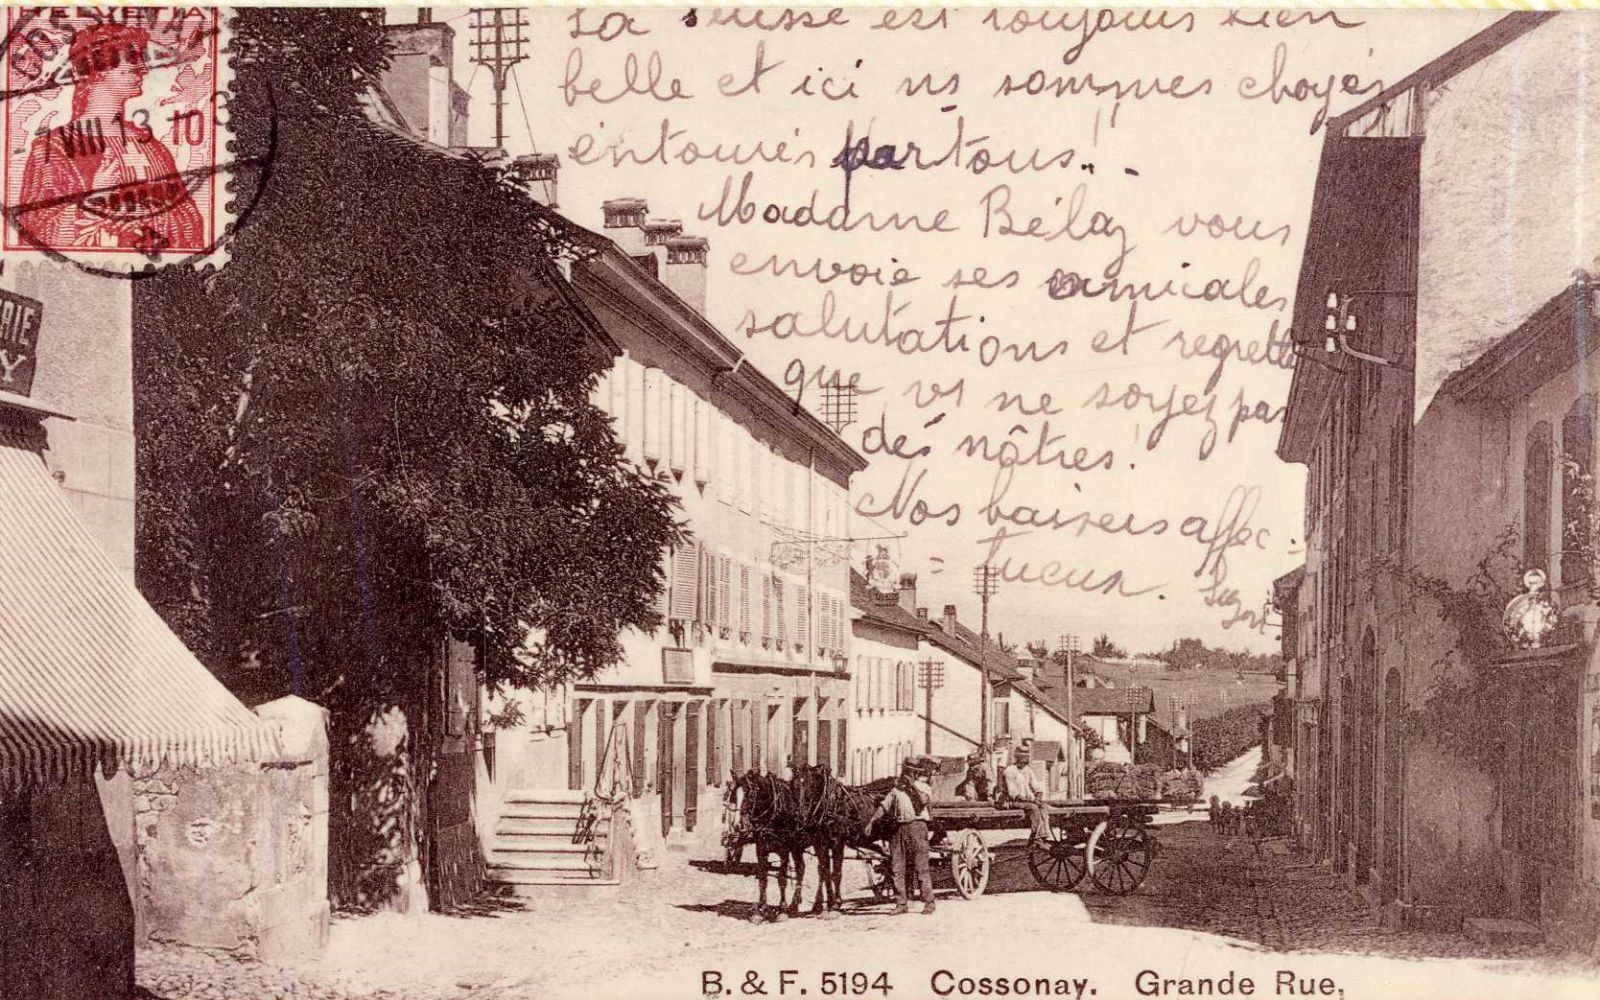 HELVETIA
COSSONAY
7 VIII 13 - 3
10
RIE
Y
La Suisse est toujours bien
belle et ici ns sommes choyés
entourés par tous!! -
Madame Bélaz vous
envoie ses amicales
salutations et regrette
que vs ne soyez pas
des nôtres!
Nos baisers affec -
= tueux. Suzon.
B. & F. 5194 Cossonay. Grande Rue.